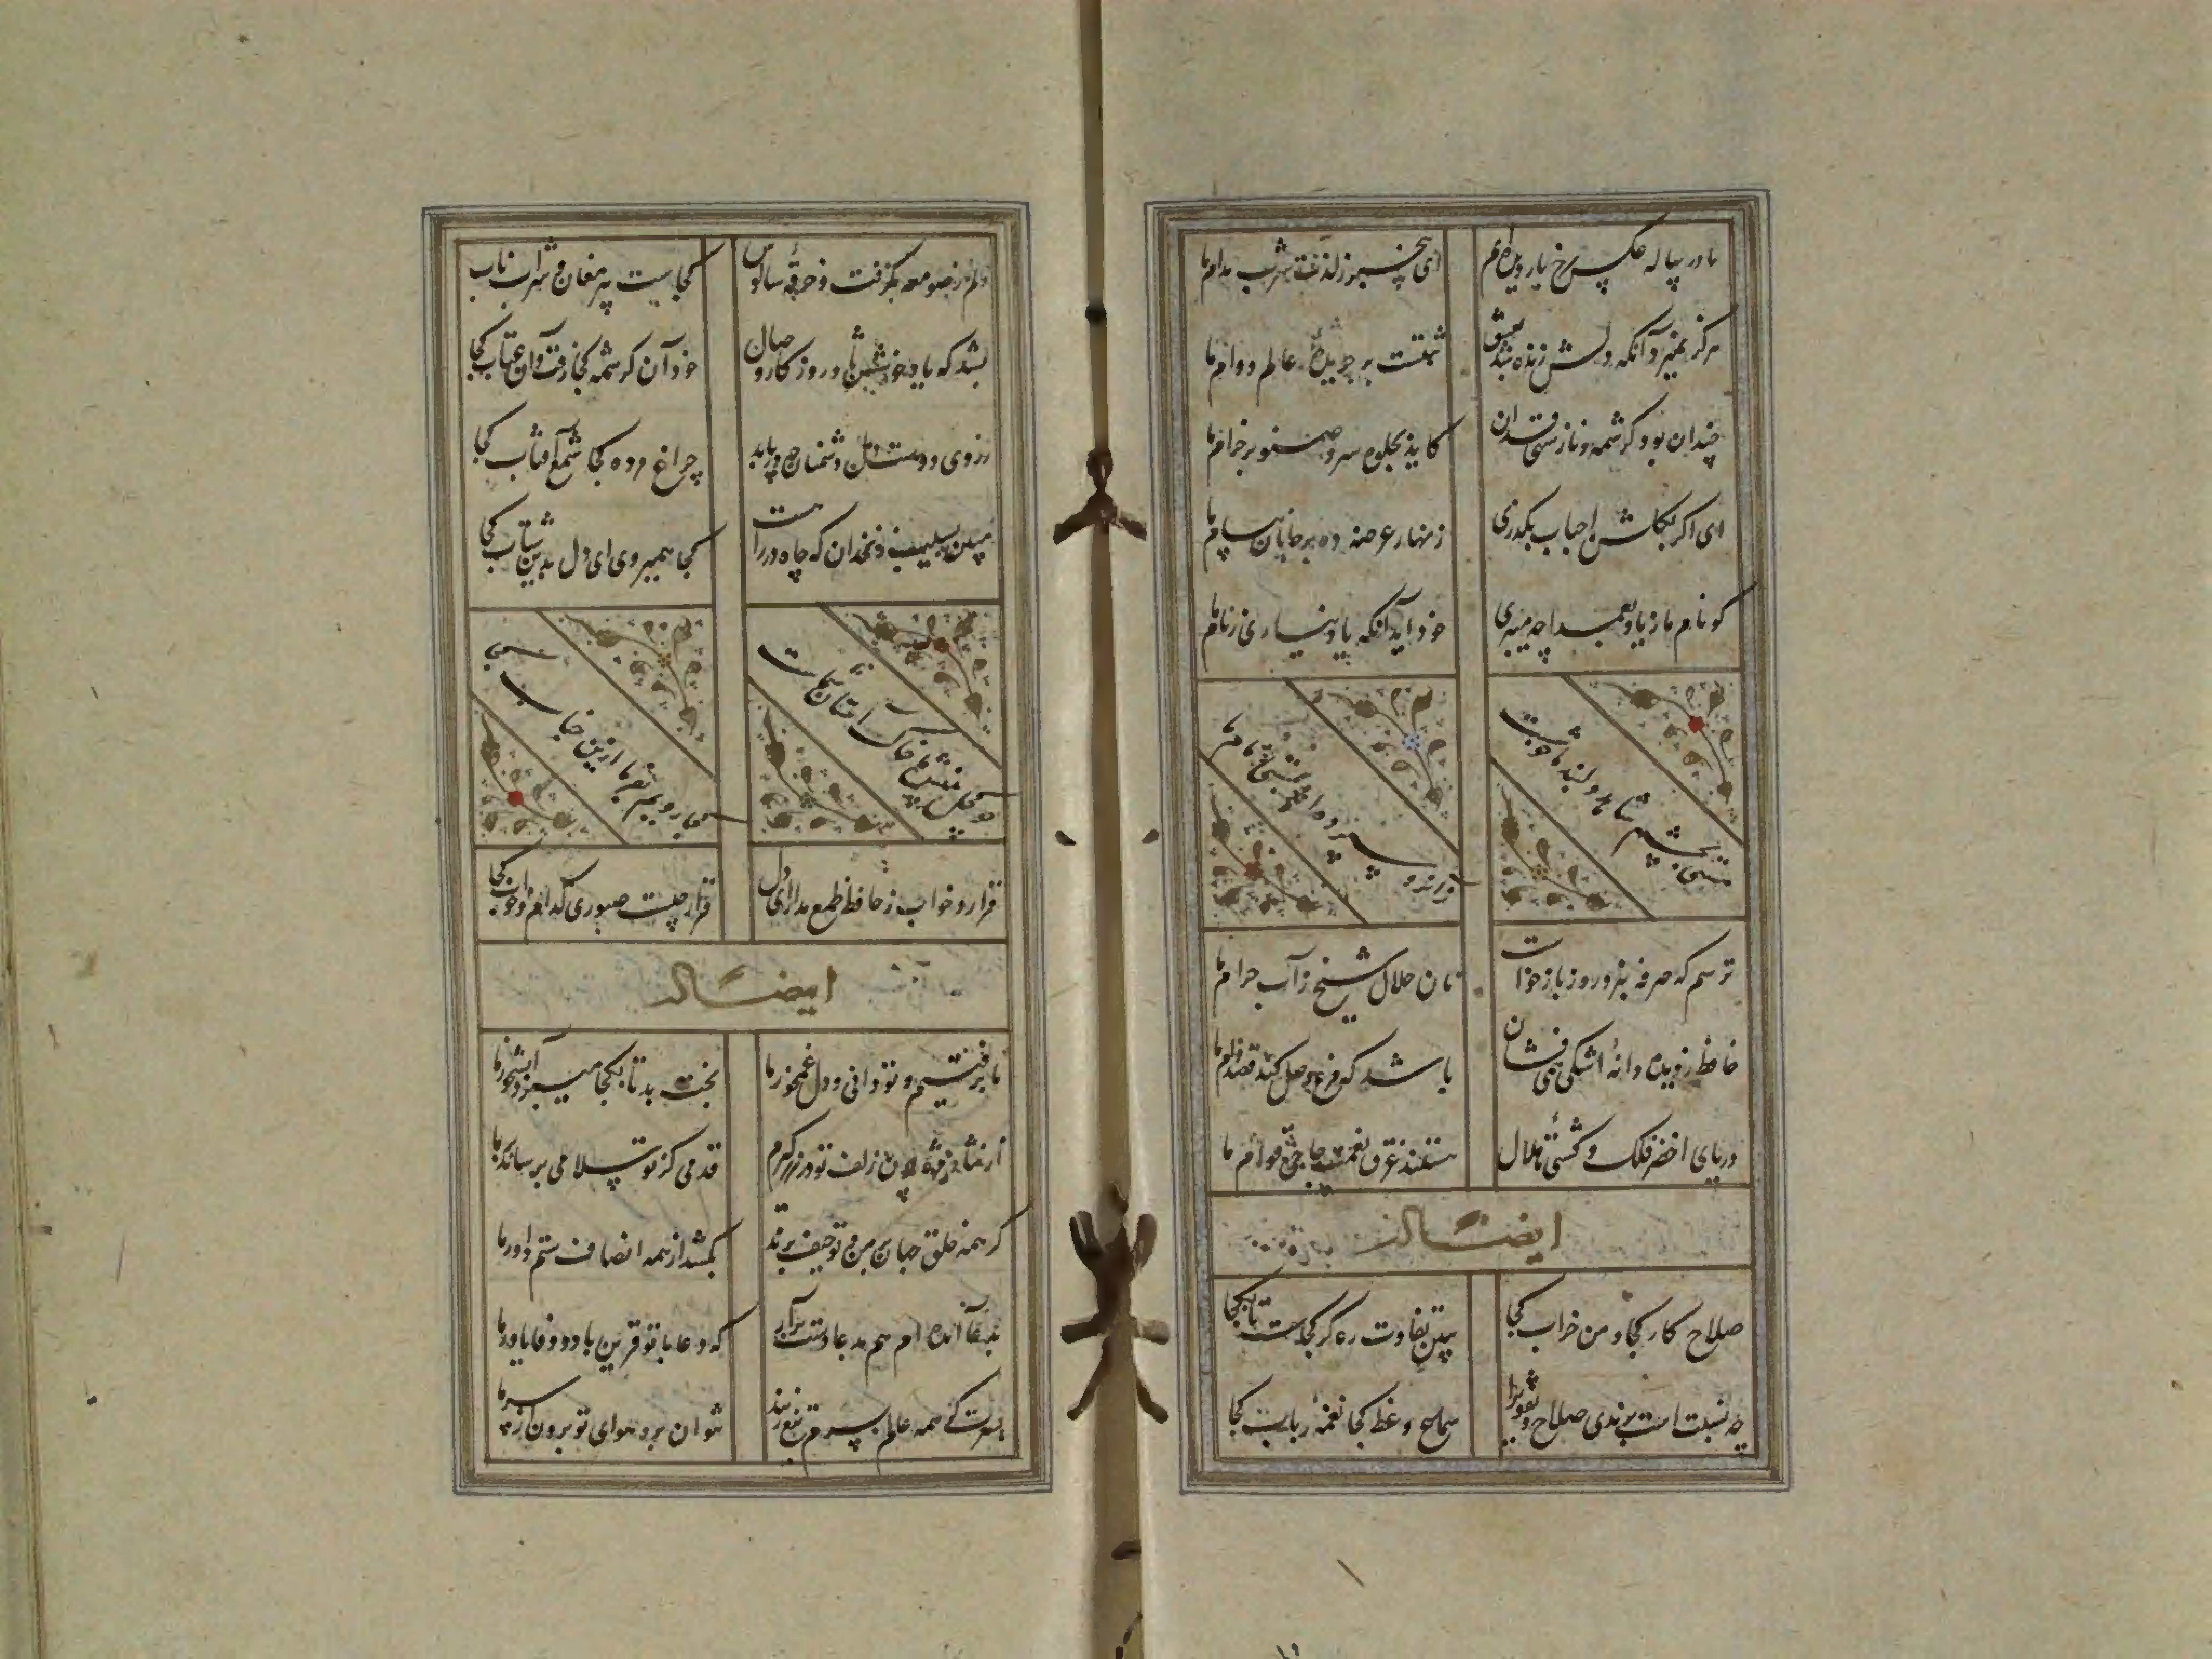 ما در پیاله عکس رخ یار دیده‌ایم
ای بیخبر ز لذت شرب مدام ما
هرگز نمیرد آنکه دلش زنده شد بعشق
ثبتست بر جریدهٔ عالم دوام ما
چندان بود کرشمه و ناز سهی قدان
کاید بجلوه سرو صنوبر خرام ما
ای اکر بکلشن احباب بکذری
زنهار عرضه ده بر جانان پیام ما
کو نام ما ز یاد بعمدا چه میبری
خود آید آنکه یاد نیاری ز نام ما
مستی بچشم شاهد دلبند ما خوشست
زانرو سپرده‌اند بمستی زمام ما
ترسم که صرفه نبرد روز بازخواست
نان حلال شیخ ز آب حرام ما
حافظ ز دیده دانهٔ اشکی همی فشان
باشد که مرغ وصل کند قصد دام ما
دریای اخضر فلک و کشتی هلال
هستند غرق نعمت حاجی قوام ما
ایضاً له
صلاح کار کجا و من خراب کجا
ببین تفاوت ره کز کجاست تا بکجا
چه نسبت است برندی صلاح و تقوی را
سماع وعظ کجا نغمهٔ رباب کجا
دلم ز صومعه بگرفت و خرقهٔ سالوس
کجاست پیر مغان و شراب ناب کجا
بشد که یاد خوشش باد روز کار وصال
خود آن کرشمه کجا رفت و آن عتاب کجا
ز روی دوست دل دشمنان چه دریابد
چراغ مرده کجا شمع آفتاب کجا
مبین بسیب زنخدان که چاه در راهست
کجا همیروی ای دل بدین شتاب کجا
چو کحل بینش ما خاک آستان شماست
کجا رویم بفرما ازین جناب کجا
قرار و خواب ز حافظ طمع مدار ای دل
قرار چیست صبوری کدام و خواب کجا
ایضاً له
ما برفتیم و تو دانی و دل غمخور ما
بخت بد تا بکجا میبرد آبشخور ما
از نثار مژه چون زلف تو در زر گیرم
قدمی کز تو سلامی برساند بر ما
کر همه خلق جهان بر من و تو حیف برند
بکشد از همه انصاف ستم داور ما
بدعا آمده‌ام هم بدعا دست برآر
که دعا با تو قرین باد و وفا یاور ما
بسرت کر همه عالم بسرم تیغ زنند
نتوان برد هوای تو برون از سر ما